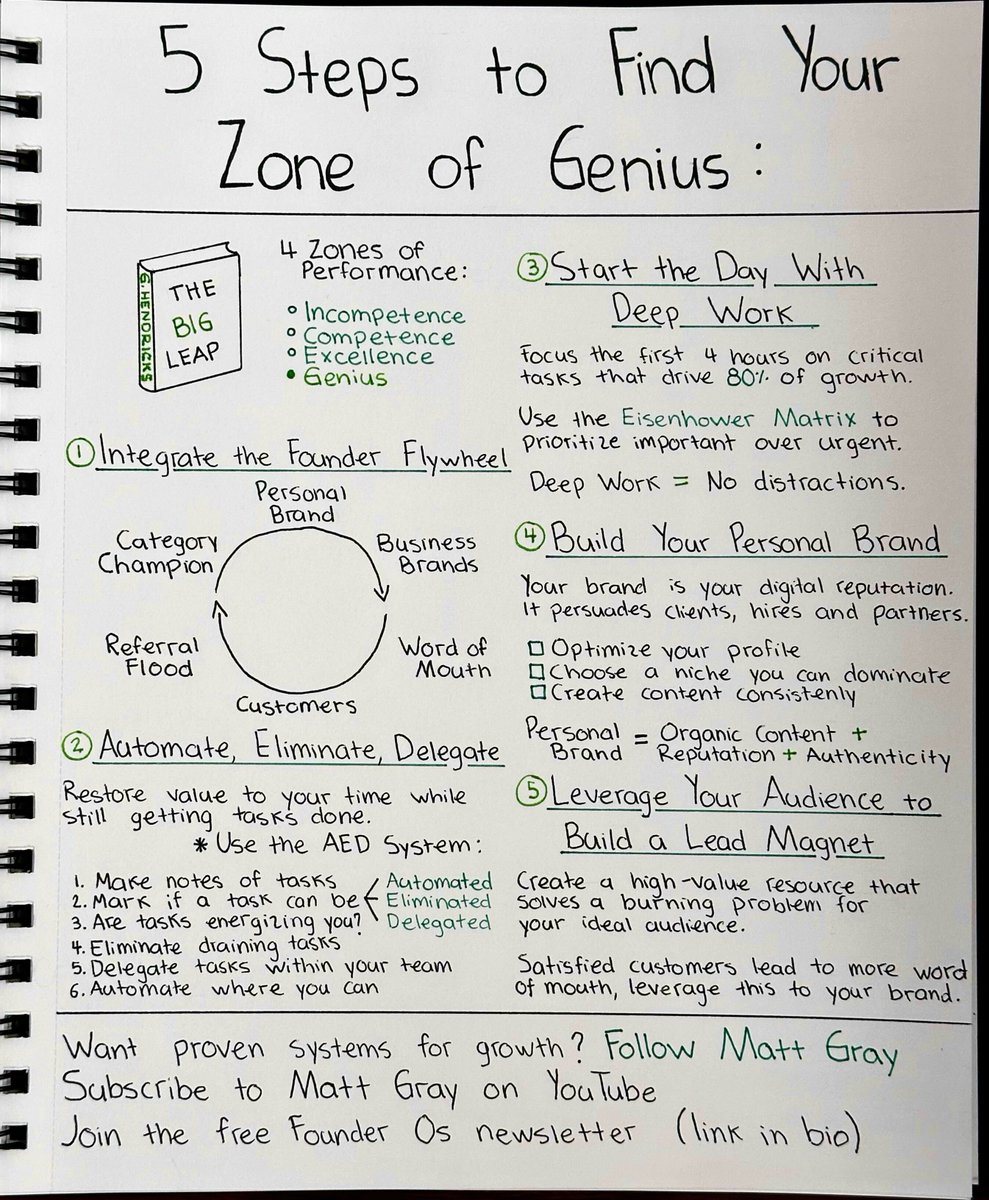 5 Steps to Find Your
Zone of Genius:
G. HENDRICKS
THE
BIG
LEAP
4 Zones of
Performance:
Incompetence
Competence
Excellence
Genius
1 Integrate the Founder Flywheel
Personal
Brand
Business
Brands
Word of
Mouth
Customers
Referral
Flood
Category
Champion
2 Automate, Eliminate, Delegate
Restore value to your time while
still getting tasks done.
* Use the AED System:
1. Make notes of tasks
2. Mark if a task can be
Automated
Eliminated
Delegated
3. Are tasks energizing you?
4. Eliminate draining tasks
5. Delegate tasks within your team
6. Automate where you can
3 Start the Day With
Deep Work
Focus the first 4 hours on critical
tasks that drive 80% of growth.
Use the Eisenhower Matrix to
prioritize important over urgent.
Deep Work = No distractions.
4 Build Your Personal Brand
Your brand is your digital reputation.
It persuades clients, hires and partners.
Optimize your profile
Choose a niche you can dominate
Create content consistenly
Personal Brand = Organic Content +
Reputation + Authenticity
5 Leverage Your Audience to
Build a Lead Magnet
Create a high-value resource that
solves a burning problem for
your ideal audience.
Satisfied customers lead to more word
of mouth, leverage this to your brand.
Want proven systems for growth? Follow Matt Gray
Subscribe to Matt Gray on YouTube
Join the free Founder Os newsletter (link in bio)